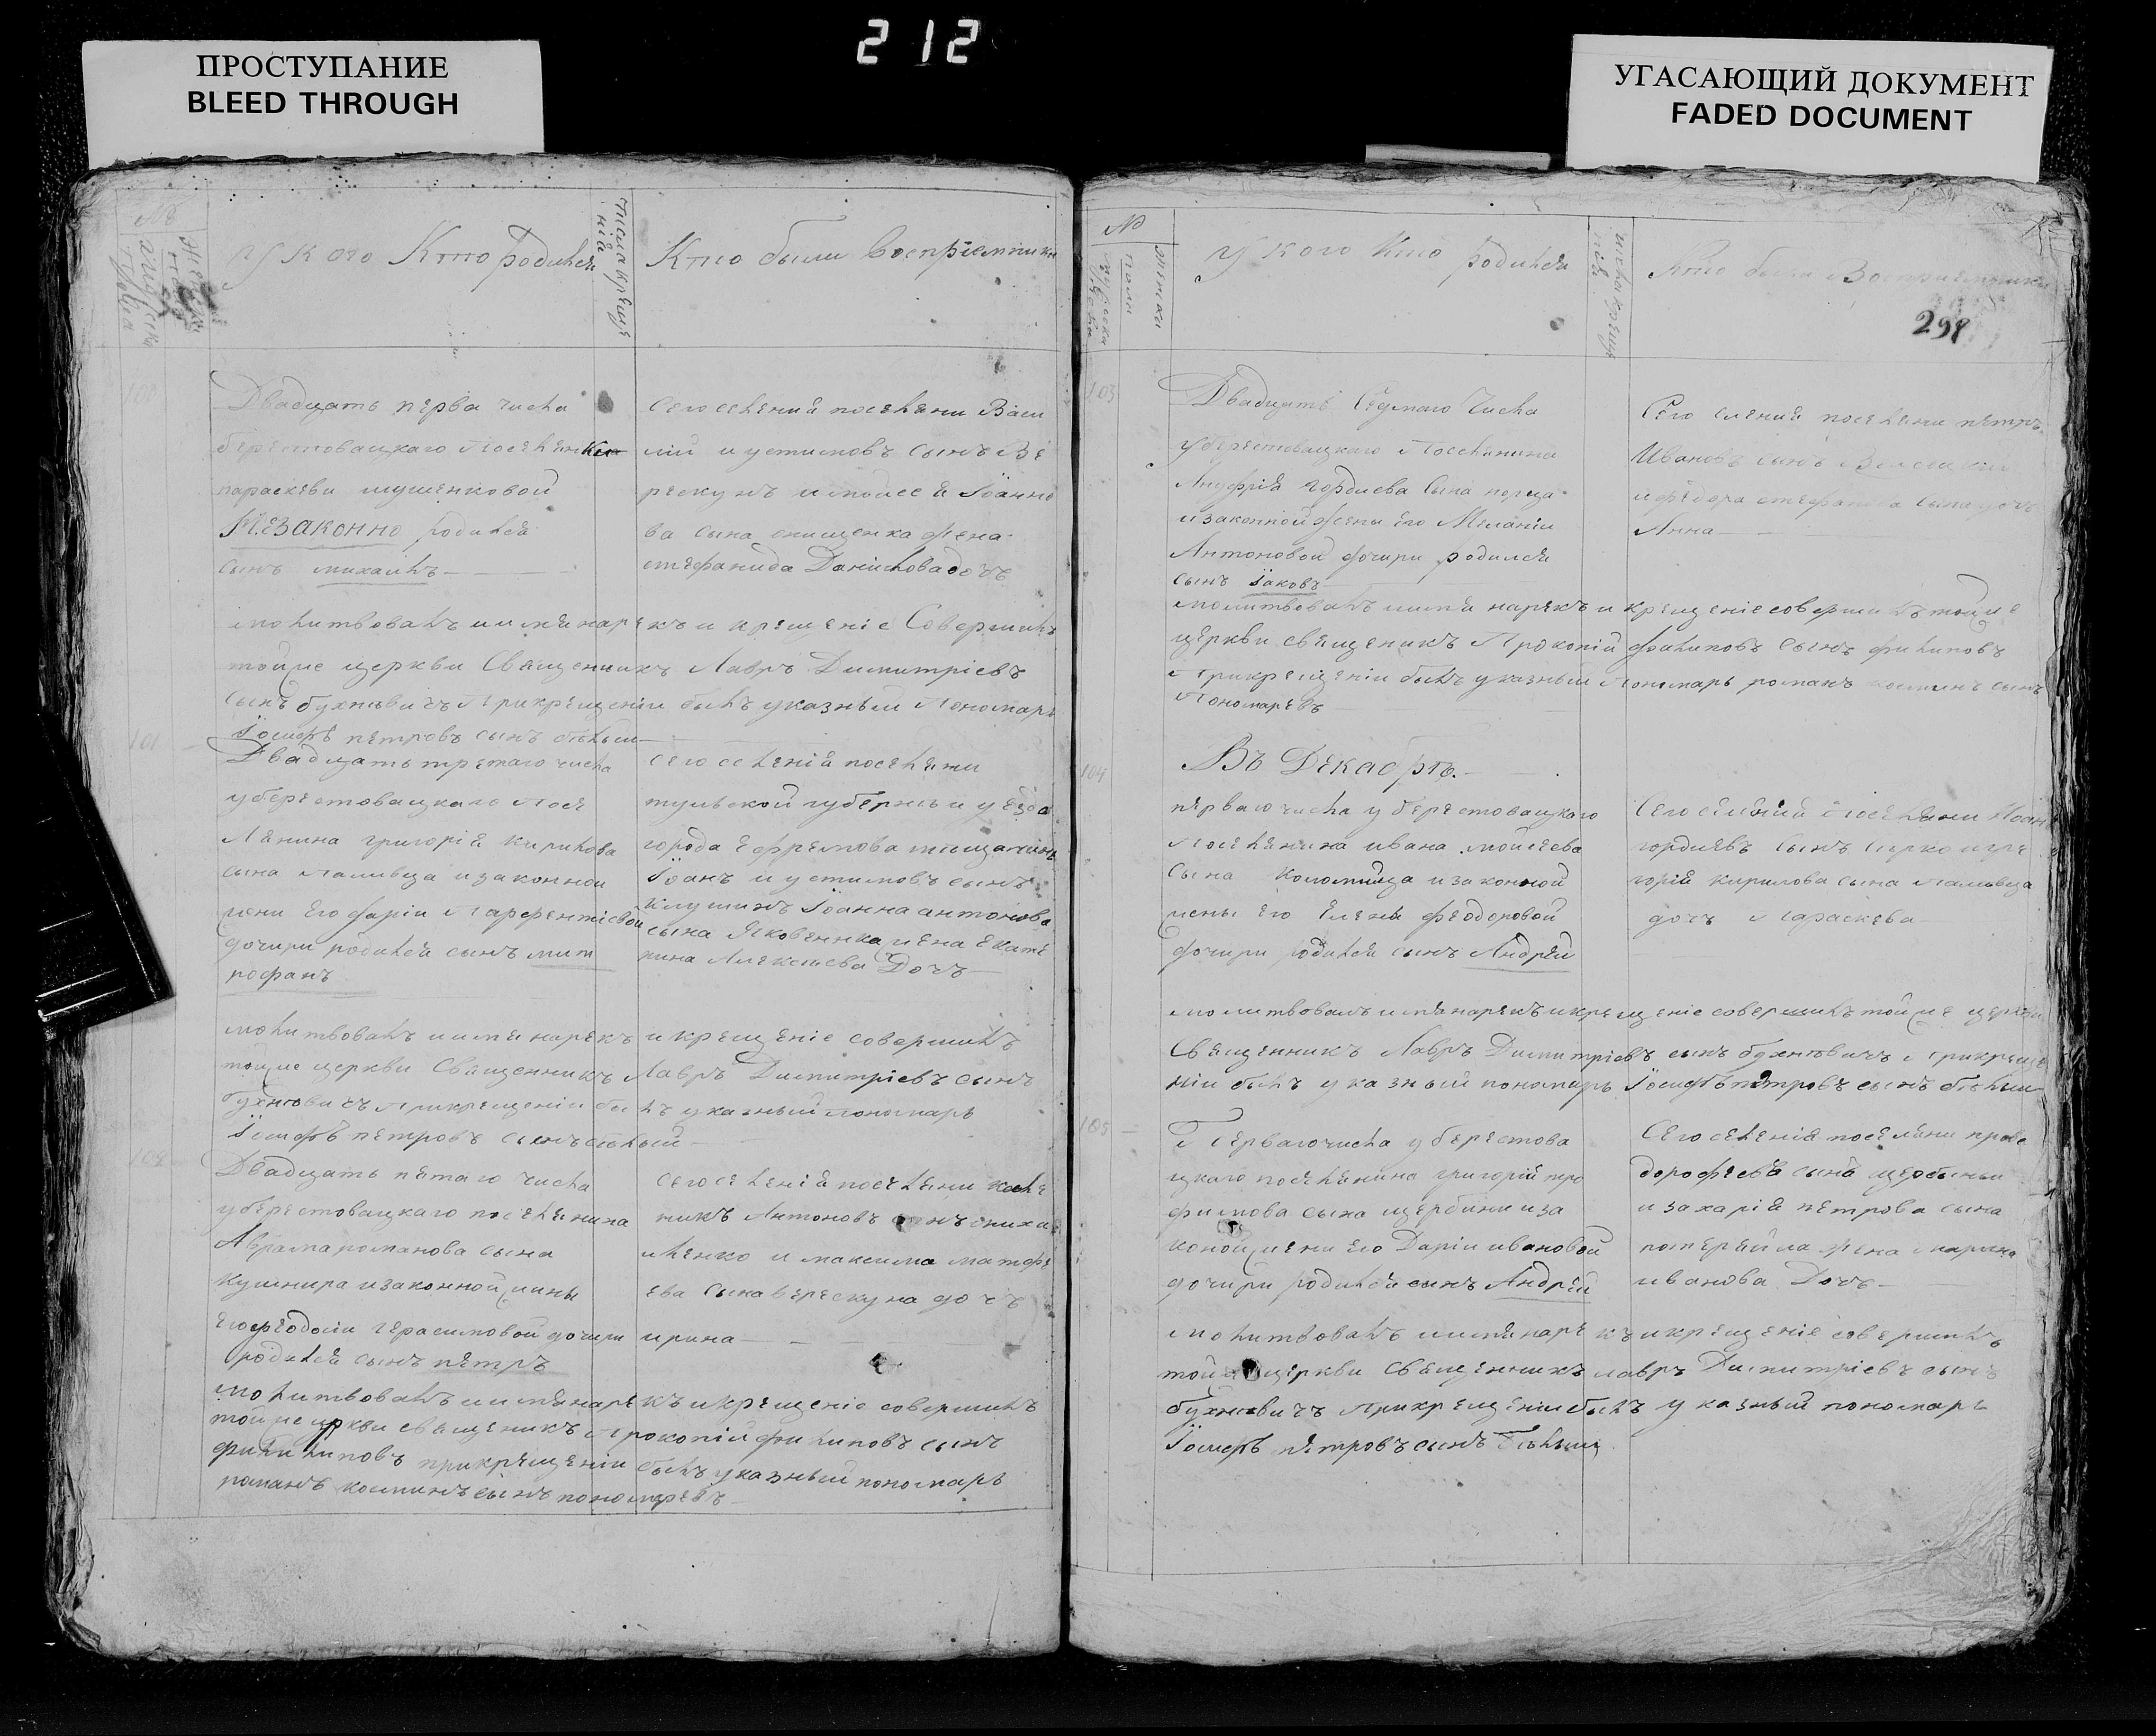 212
ПРОСТУПАНИЕ
BLEED THROUGH
УГАСАЮЩИЙ ДОКУМЕНТ
FADED DOCUMENT
№
У кого Кто родился
числа креще
нія
Кто были восприемники
100
Двадцать перва числа
берестовацкаго
параскеви шушенковой
незаконно родился
сынъ михаилъ
Сего селенія поселяни Васи
лій иустимовъ сынъ Ве
рескунъ и моисея Іоанно
ва сына онищенка жена
стефанида Данилова дочь
молитвовалъ иимя нарекъ и крещеніе Совершилъ
тойже церкви Священникъ Лавръ Димитріевъ
сынъ бухневичъ Прикрещеніи былъ указный Пономарь
Іосифъ петровъ сынъ белый
101
Двадцать третаго числа
уберестовацкаго Посе
Лянина григорія кирилова
сына Паливца изаконной
жени Его Дарии Парфентіевой
дочири родился сынъ мит
рофанъ
Сего селенія поселяни
тульской губерніи уезда
города Ефремова мещанинъ
Іоанъ иустимовъ сынъ
клушинъ Іоанна антонова
сына Яковенка жена Екате
рина Алексиева Дочь
молитвовалъ иимя нарекъ и крещеніе совершилъ
тойже церкви Священникъ Лавръ Димитріевъ сынъ
бухневичъ Прикрещеніи былъ указный пономарь
Іосифъ петровъ сынъ белый
102
Двадцать пятаго числа
уберестовацкаго поселянина
Аврама романова сына
кушнира изаконной жины
Его феодосии герасимовой дочири
родился сынъ петръ
Сего селенія поселяни
никъ Антоновъ сынъ
ленко и максима матфе
ева сына верескуна дочь
ирина
молитвовалъ иимя нарекъ икрещеніе совершилъ
тойже церкви священикъ Прокопій филиповъ сынъ
филиповъ прикрещеніи былъ указный пономарь
романъ косминъ сынъ пономаревъ
№
У кого Кто родился
числа креще
нія
Кто были Восприемники
298
103
Двадцать Седмаго Числа
уберестовацкаго Поселянина
Ануфрія гордиева сына
изаконной жены его Меланіи
Антоновой дочири родился
сынъ Іаковъ
Сего селенія поселяни петръ
Ивановъ сынъ
ифедора стефанова сына дочь
Анна
молитвовалъ иимя нарекъ и крещеніе совершилъ тойже
церкви священикъ Прокопій филиповъ сынъ филиповъ
Прикрещеніи былъ указный Пономарь романъ косминъ сынъ
Пономаревъ
Въ Декабрѣ.
104
перваго числа уберестовацкаго
Поселянина ивана моисеева
сына коломийца изаконной
жены его Елены феодоровой
дочири родился сынъ Андрей
Сего селенія поселяни Иоан
гордиевъ сынъ игре
горій кирилова сына Паливца
дочь Параскева
молитвовалъ иимя нарекъ икрещеніе совершилъ тойже церкви
Священникъ Лавръ Димитріевъ сынъ бухневичъ Прикреще
ніи былъ указный пономарь Іосифъ петровъ сынъ белый
105
Перваго числа уберестова
цкаго поселянина григорій тро
фимова сына щербини иза
коной жени его Даріи ивановой
дочири родился сынъ Андрей
Сего селенія поселяни
дорофеевъ сынъ щербины
и захарія петрова сына
жена марина
иванова Дочь
молитвовалъ иимя нарекъ икрещеніе совершилъ
тойже церкви Священникъ лавръ Димитріевъ сынъ
бухневичъ Прикрещеніи былъ указный пономарь
Іосифъ петровъ сынъ белый